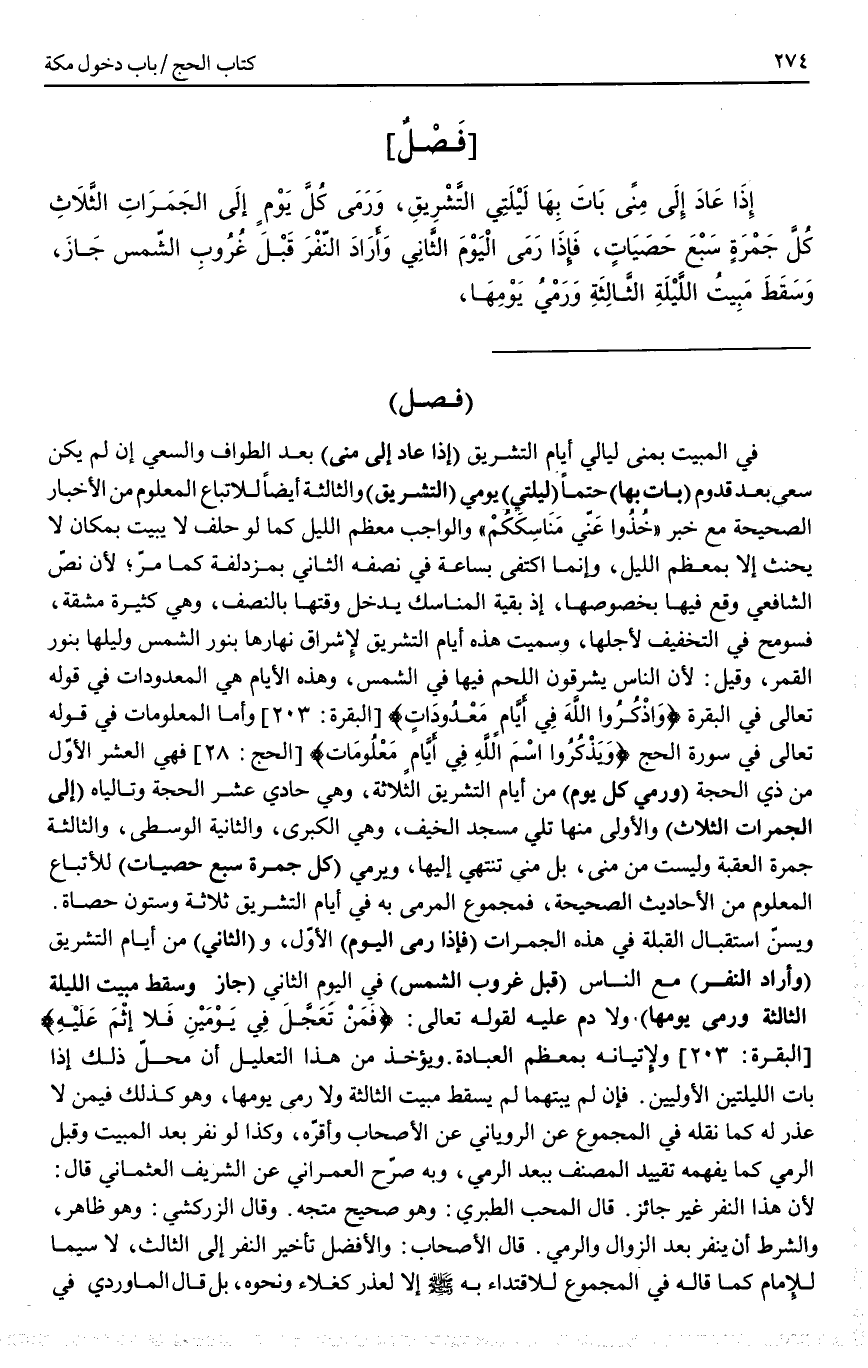 ٢٧٤
كتاب الحج / باب دخول مكة
[فَصْلٌ]
إِذَا عَادَ إِلَى مِنًى بَاتَ بِهَا لَيْلَتِي التَّشْرِيقِ، وَرَمَى كُلَّ يَوْمٍ إِلَى الجَمَرَاتِ الثَّلَاثِ
كُلَّ جَمْرَةٍ سَبْعَ حَصَيَاتٍ، فَإِذَا رَمَى الْيَوْمَ الثَّانِي وَأَرَادَ النَّفْرَ قَبْلَ غُرُوبِ الشَّمس جَازَ،
وَسَقَطَ مَبِيتُ اللَّيْلَةِ الثَّالِثَةِ وَرَمْيُ يَوْمِهَا،
(فصل)
في المبيت بمنى ليالي أيام التشريق (إذا عاد إلى منى) بعد الطواف والسعي إن لم يكن
سعى بعد قدوم (بات بها) حتماً (ليلتي) يومي (التشريق) والثالثة أيضاً للاتباع المعلوم من الأخبار
الصحيحة مع خبر «خُذُوا عَنِّي مَنَاسِكَكُمْ» والواجب معظم الليل كما لو حلف لا يبيت بمكان لا
يحنث إلا بمعظم الليل، وإنما اكتفى بساعة في نصفه الثاني بمزدلفة كما مرّ؛ لأن نصّ
الشافعي وقع فيها بخصوصها، إذ بقية المناسك يدخل وقتها بالنصف، وهي كثيرة مشقة،
فسومح في التخفيف لأجلها، وسميت هذه أيام التشريق لإشراق نهارها بنور الشمس وليلها بنور
القمر، وقيل: لأن الناس يشرقون اللحم فيها في الشمس، وهذه الأيام هي المعدودات في قوله
تعالى في البقرة ﴿وَاذْكُرُوا اللَّهَ فِي أَيَّامٍ مَعْدُودَاتٍ﴾ [البقرة: ٢٠٣] وأما المعلومات في قوله
تعالى في سورة الحج ﴿وَيَذْكُرُوا اسْمَ اللَّهِ فِي أَيَّامٍ مَعْلُومَات﴾ [الحج: ٢٨] فهي العشر الأوّل
من ذي الحجة (ورمي كل يوم) من أيام التشريق الثلاثة، وهي حادي عشر الحجة وتالياه (إلى
الجمرات الثلاث) والأولى منها تلي مسجد الخيف، وهي الكبرى، والثانية الوسطى، والثالثة
جمرة العقبة وليست من منى، بل منى تنتهي إليها، ويرمي (كل جمرة سبع حصيات) للأتباع
المعلوم من الأحاديث الصحيحة، فمجموع المرمى به في أيام التشريق ثلاثة وستون حصاة.
ويسنّ استقبال القبلة في هذه الجمرات (فإذا رمى اليوم) الأول، و (الثاني) من أيام التشريق
(وأراد النفر) مع الناس (قبل غروب الشمس) في اليوم الثاني (جاز وسقط مبيت الليلة
الثالثة ورمى يومها). ولا دم عليه لقوله تعالى: ﴿فَمَنْ تَعَجَّلَ فِي يَوْمَيْنِ فَلا إثْمَ عَلَيْهِ﴾
[البقرة: ٢٠٣] ولإتيانه بمعظم العبادة. ويؤخذ من هذا التعليل أن محلّ ذلك إذا
بات الليلتين الأوليين. فإن لم يبتهما لم يسقط مبيت الثالثة ولا رمى يومها، وهو كذلك فيمن لا
عذر له كما نقله في المجموع عن الروياني عن الأصحاب وأقرّه، وكذا لو نفر بعد المبيت وقبل
الرمي كما يفهمه تقييد المصنف ببعد الرمي، وبه صرّح العمراني عن الشريف العثماني قال:
لأن هذا النفر غير جائز. قال المحب الطبري: وهو صحيح متجه. وقال الزركشي: وهو ظاهر،
والشرط أن ينفر بعد الزوال والرمي. قال الأصحاب: والأفضل تأخير النفر إلى الثالث، لا سيما
للإمام كما قاله في المجموع للاقتداء به ﷺ إلا لعذر كغلاء ونحوه، بل قال الماوردي في